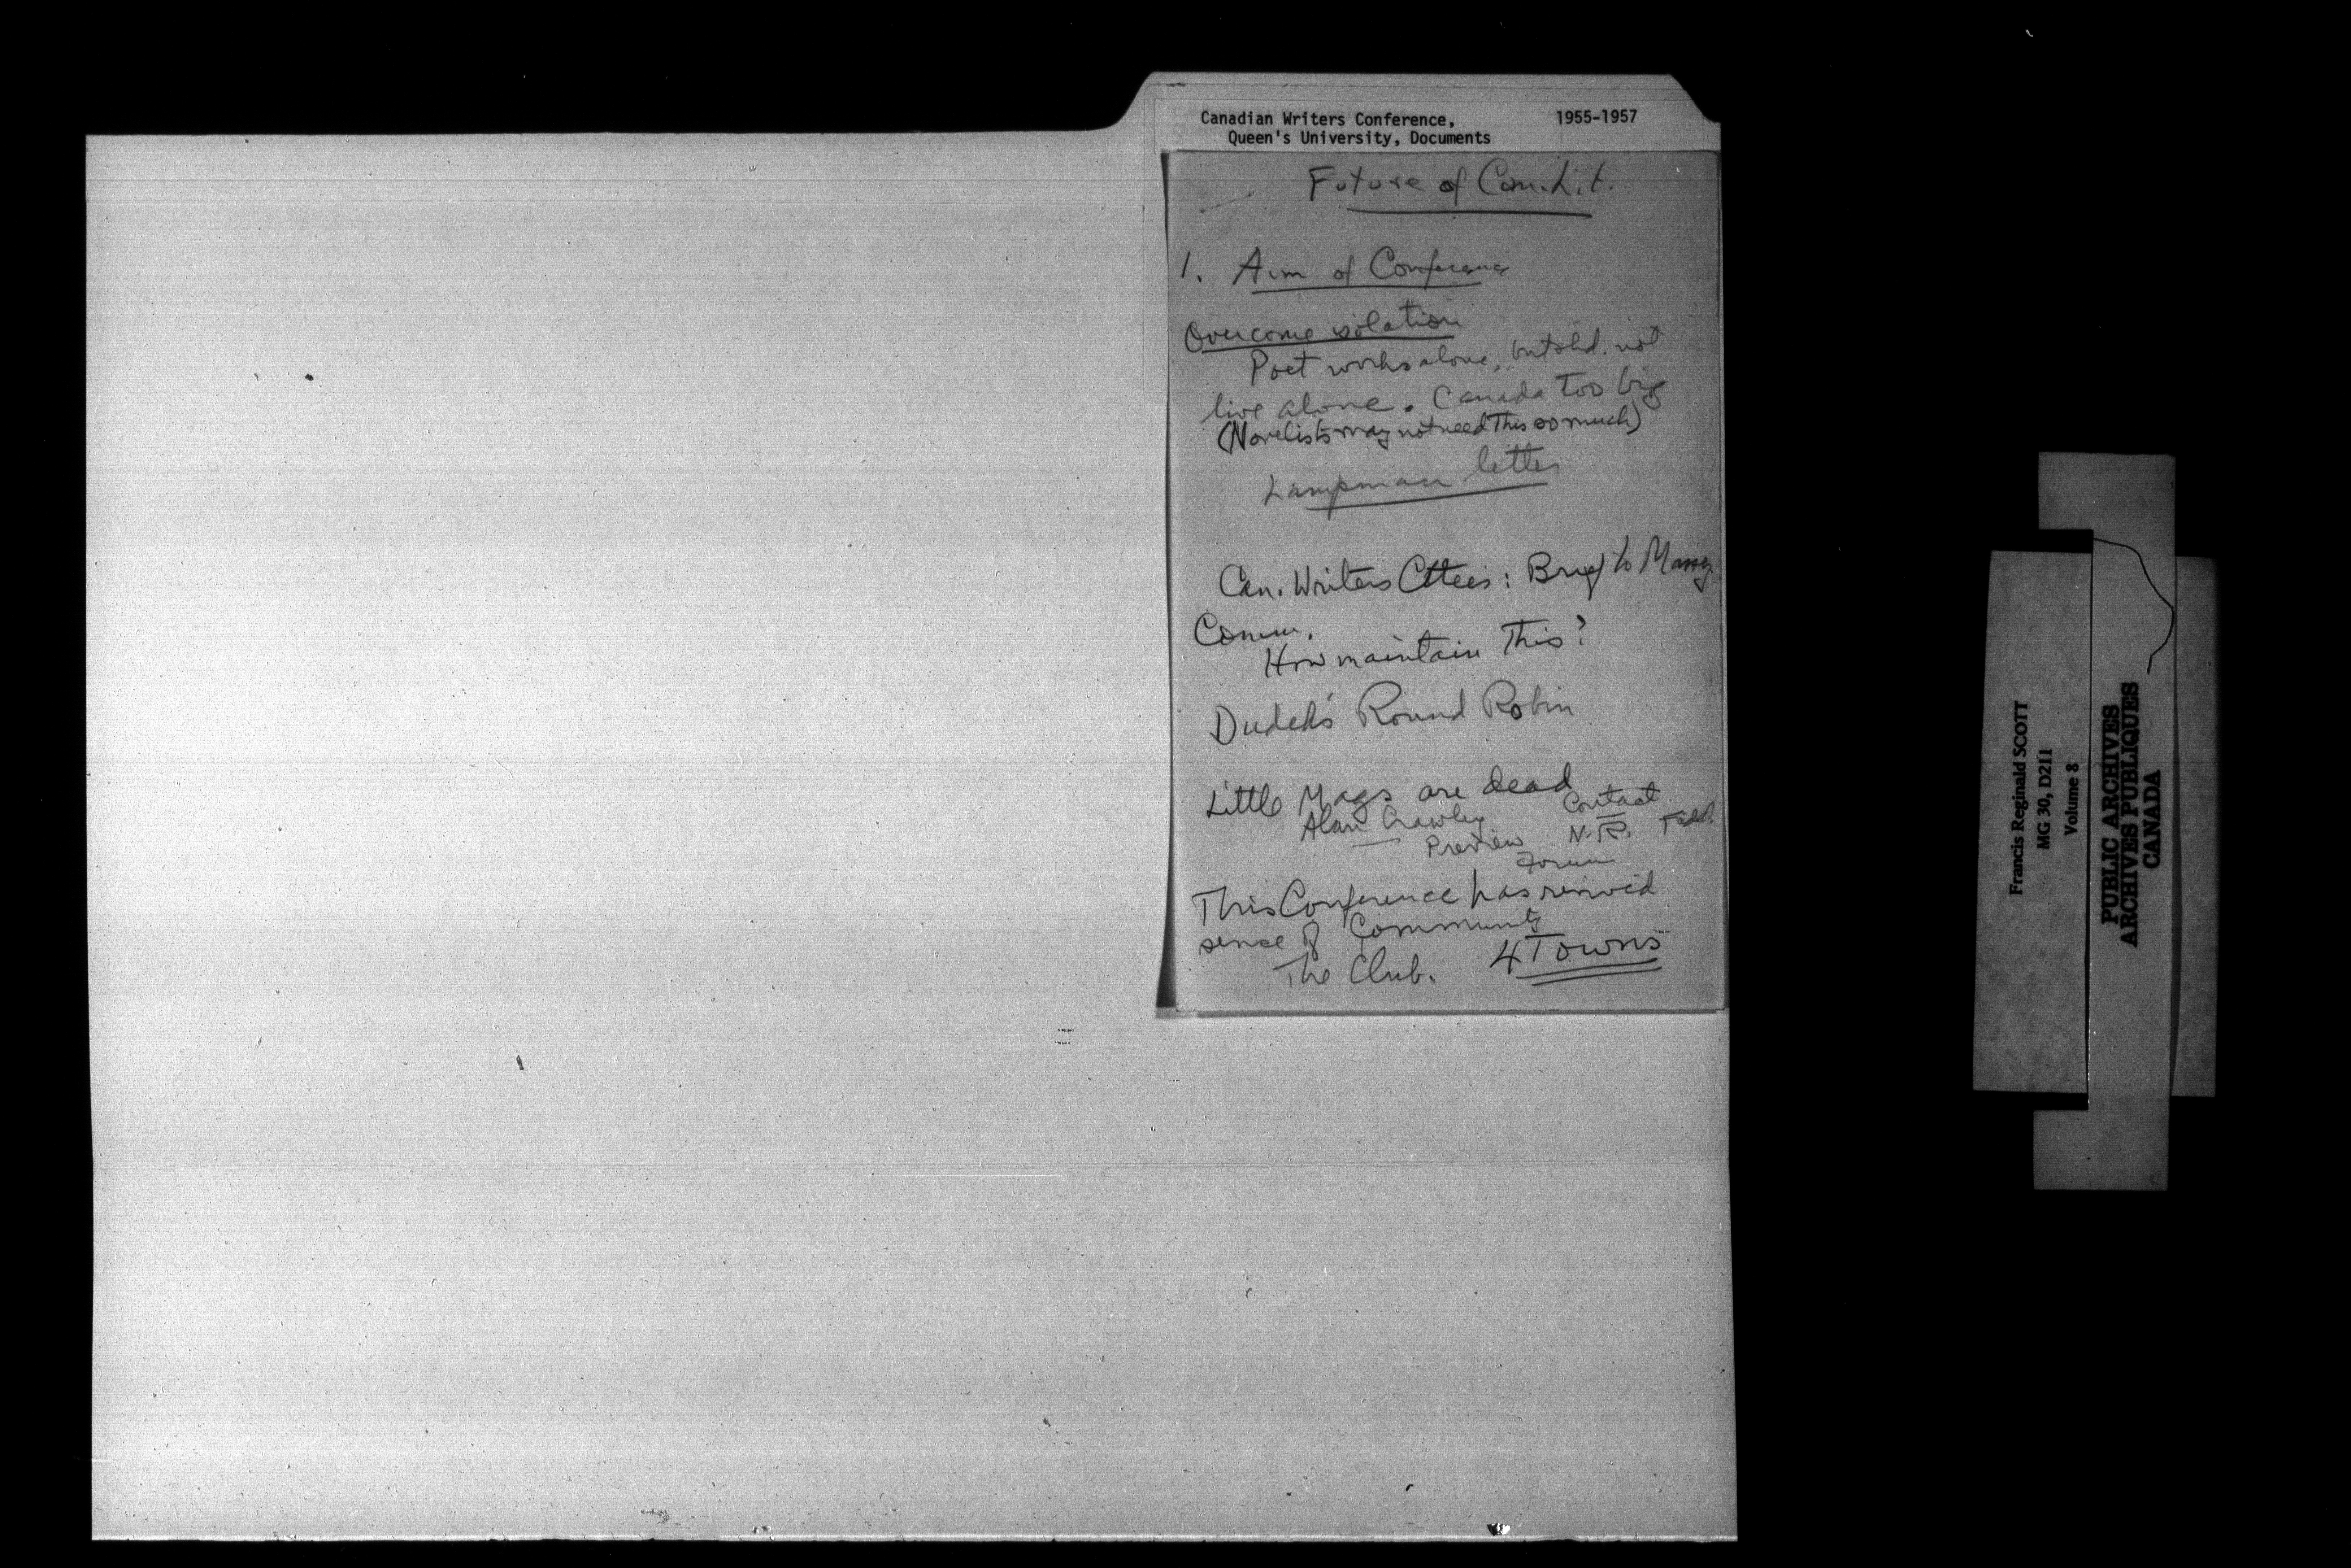 Canadian Writers Conference, 1955-1957
Queen's University, Documents
Future of Can. Lit.
1. Aim of Conference
Overcome isolation
Poet works alone, but shd. not
live alone. Canada too big
(Novelists may not need this so much)
Lampman letter
Can. Writers Cttees: Brief to Massey
Comm.
How maintain this?
Dudek's Round Robin
Little Mags are dead
Alan Crawley Contact
Preview N.R.
Forum
This Conference has revived
sense of Community
The Club. 4 Towns
Francis Reginald SCOTT
MG 30, D211
Volume 8
PUBLIC ARCHIVES
ARCHIVES PUBLIQUES
CANADA